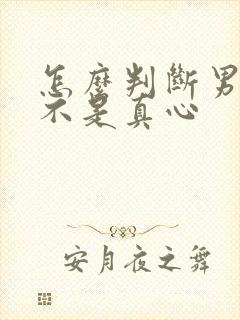 怎麼判斷男
不是真心
安月夜之舞